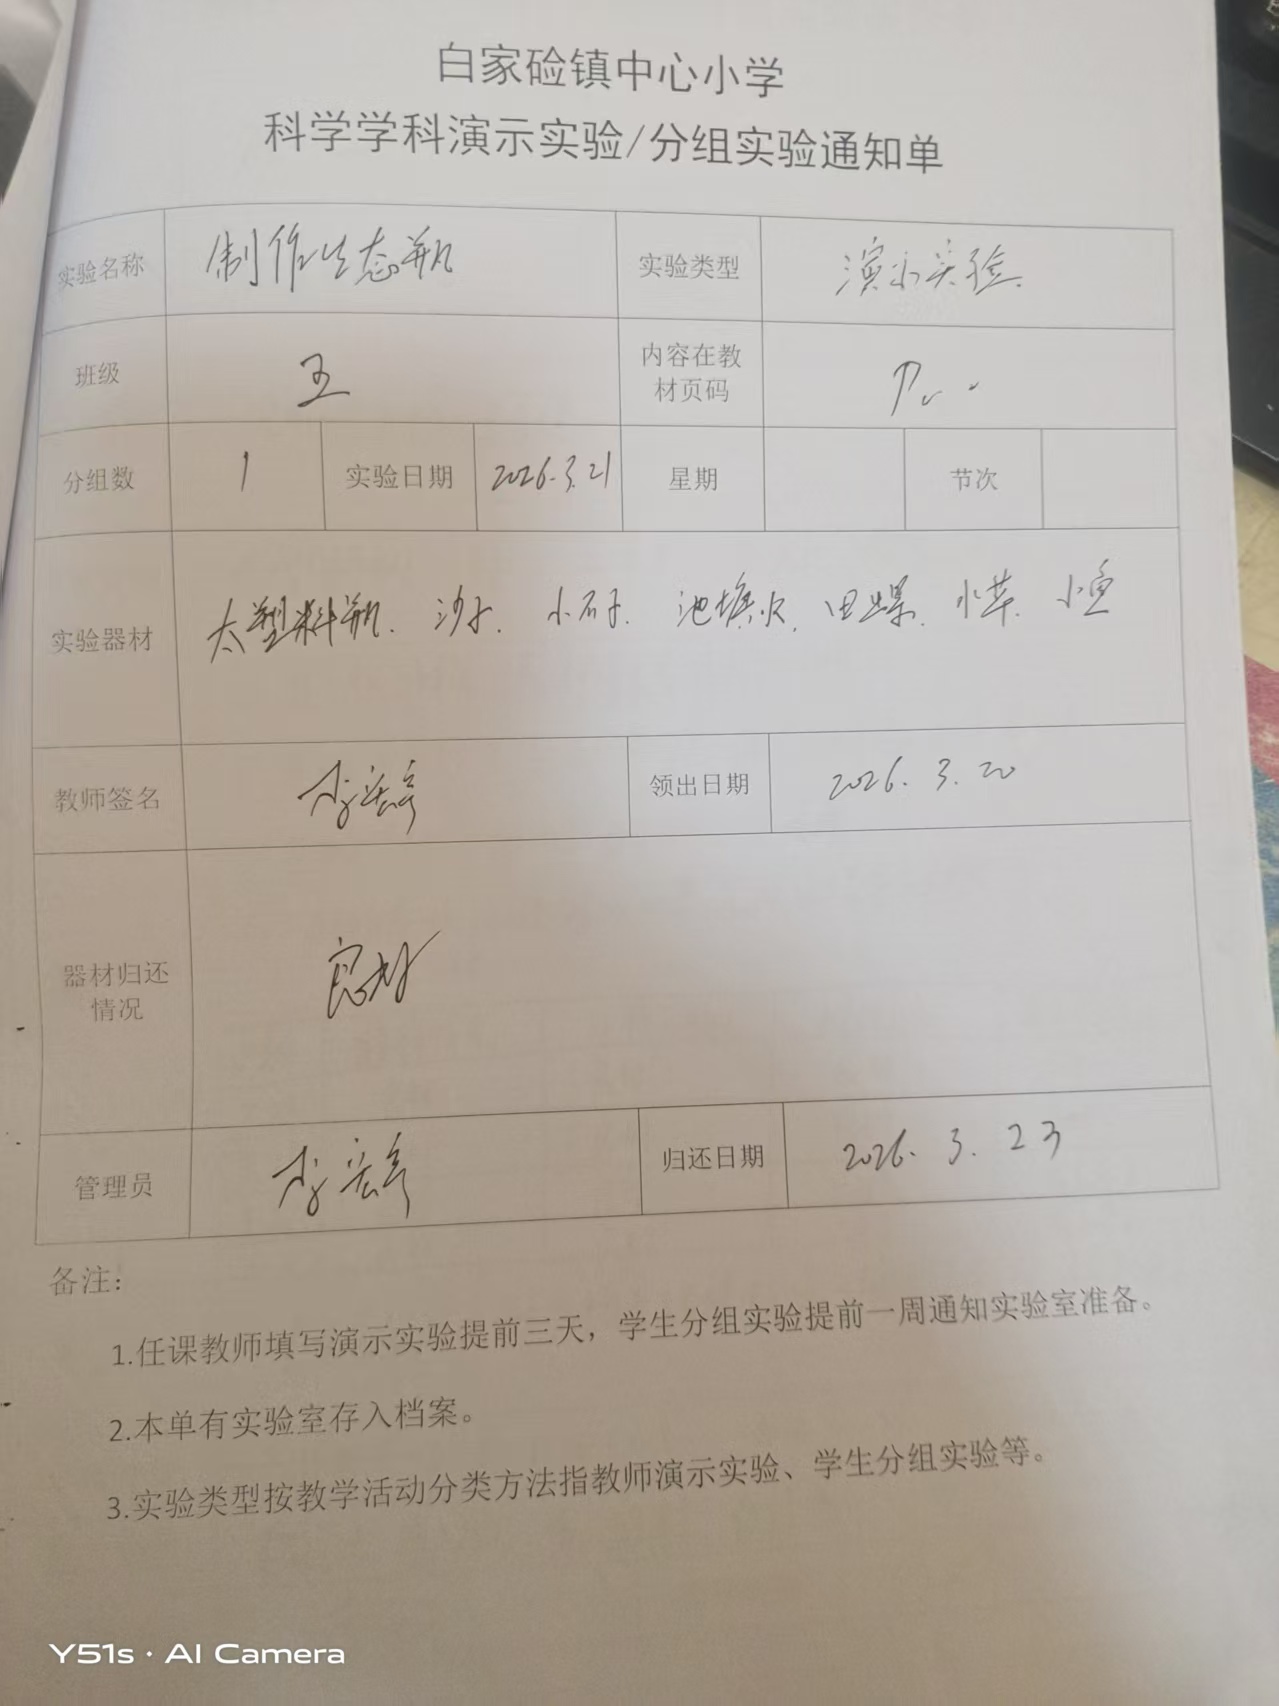 白家硷镇中心小学
科学学科演示实验/分组实验通知单
实验名称 制作生态瓶 实验类型 演示实验
班级 五 内容在教材页码 P
分组数 1 实验日期 2026.3.21 星期 节次
实验器材 大塑料瓶. 沙子. 小石子. 池塘水. 田螺. 水草. 小鱼
教师签名 李宏 领出日期 2026.3.20
器材归还情况 良好
管理员 李宏 归还日期 2026.3.23
备注：
1.任课教师填写演示实验提前三天，学生分组实验提前一周通知实验室准备。
2.本单有实验室存入档案。
3.实验类型按教学活动分类方法指教师演示实验、学生分组实验等。
Y51s · AI Camera